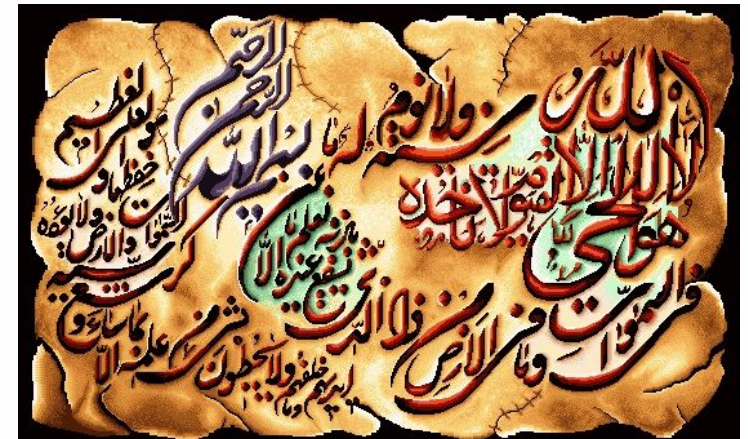 بسم الله الرحمن الرحيم
الله لا إله إلا هو الحي القيوم لا تأخذه
سنة ولا نوم له ما
في السموات وما في الأرض من ذا الذي
يشفع عنده إلا بإذنه يعلم ما بين
أيديهم وما خلفهم ولا يحيطون بشئ من علمه إلا
بما شاء وسع كرسيه
السموات والأرض ولا يؤده
حفظهما و
هو العلي العظيم